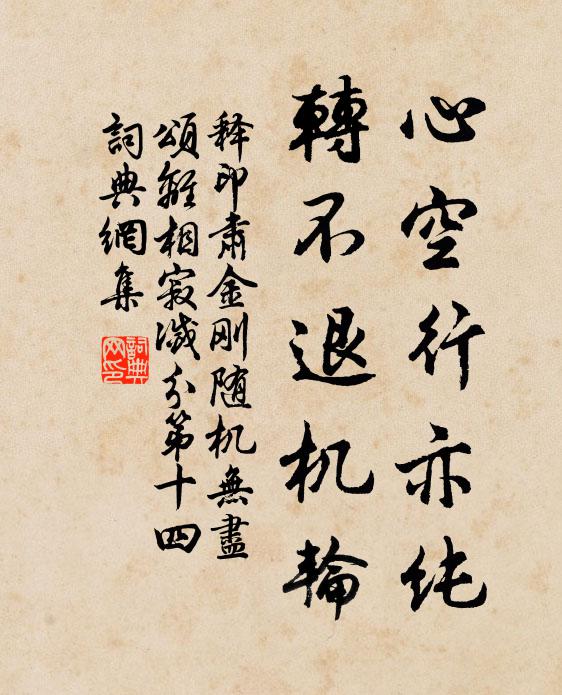 心空行亦纯
轉不退机輪
释印肃金刚随机無盡
頌離相寂滅分第十四
詞典網集
詞典网印